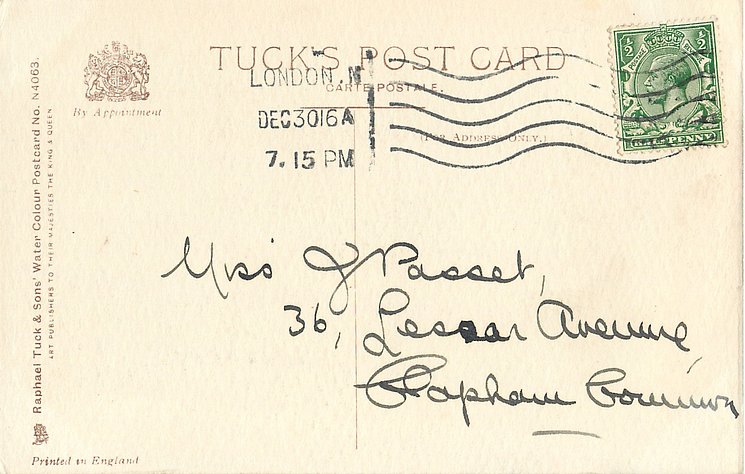 TUCK'S POST CARD
CARTE POSTALE.
(For Address Only.)
By Appointment
LONDON. N
DEC 30 16 A
7. 15 PM
½ ½
HALF PENNY
Miss J Passet,
36, Lessar Avenue,
Clapham Common
Raphael Tuck & Sons' Water Colour Postcard No. N4063.
ART PUBLISHERS TO THEIR MAJESTIES THE KING & QUEEN
Printed in England